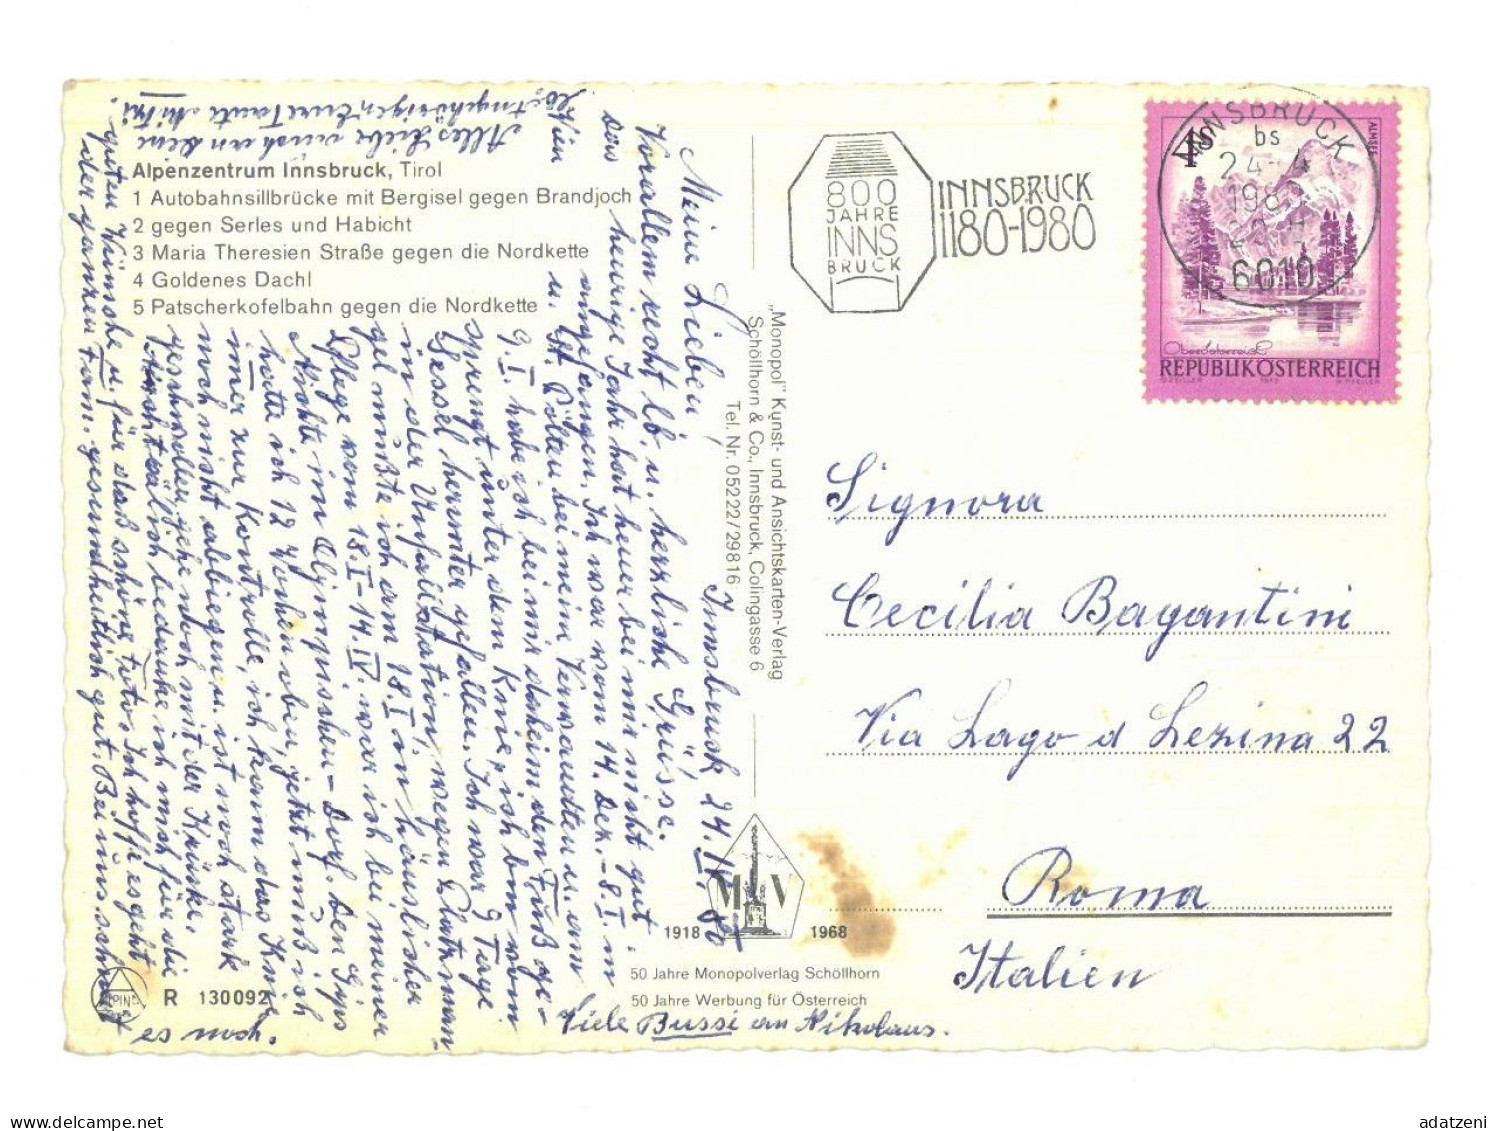 Alpenzentrum Innsbruck, Tirol
1 Autobahnsillbrücke mit Bergisel gegen Brandjoch
2 gegen Serles und Habicht
3 Maria Theresien Straße gegen die Nordkette
4 Goldenes Dachl
5 Patscherkofelbahn gegen die Nordkette
Innsbruck 24.IV.80
Meine Lieben,
Vorallem recht lb. u. herzliche Grüsse.
Das heurige Jahr hat heuer bei mir nicht gut
angefangen. Ich war vom 14. Dez.-8.I. in
Wien u. St. Pölten bei meinen Verwandten u. am
9.I. habe ich bei mir daheim den Fuß ge-
sprengt unter dem Knie, ich bin vom
Sessel herunter gefallen. Ich war 9 Tage
in der Unfallstation, wegen Platzman-
gel mußte ich am 18.I. in häuslicher
Pflege vom 18.I-14.IV. war ich bei meiner
Nichte im Olympischen-Dorf. Den Gips
hatte ich 12 Wochen oben, jetzt muß ich
immer zur Kontrolle, ich kann das Knie
noch nicht abbiegen u. ist noch stark
geschwollen gehe noch mit der Krücke.
Nachträlich bedanke ich mich für die
guten Wünsche u. für das schöne Foto. Ich hoffe es geht
der ganzen Fam. gesundheitlich gut. Bei uns schneit
es noch.
Alles Liebe auch an Deine
lb. Angehörigen Eure Tante Mitzi
Viele Bussi an Nikolaus.
„Monopol" Kunst- und Ansichtskarten-Verlag
Schöllhorn & Co., Innsbruck, Colingasse 6
Tel. Nr. 05222/29816
MV
1918 1968
50 Jahre Monopolverlag Schöllhorn
50 Jahre Werbung für Österreich
R 130092
800
JAHRE
INNS
BRUCK
INNSBRUCK
1180-1980
INNSBRUCK
bs
24-4
6010
4S
ALMSEE
Oberösterreich
REPUBLIK ÖSTERREICH
Signora
Cecilia Bagantini
Via Lago d Lezina 22
Roma
Italien
adatzeni